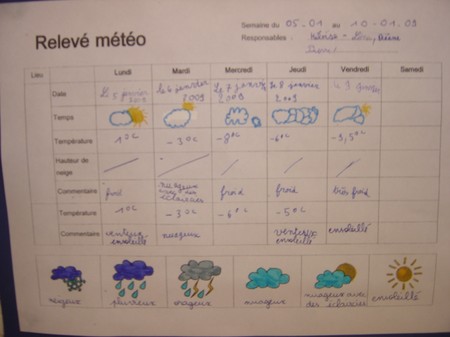 Relevé météo
Semaine du 05.01 au 10-01.09
Responsables :
Lieu Lundi Mardi Mercredi Jeudi Vendredi Samedi
Date le 5 janvier 2009 le 6 janvier 2009 le 7 janvier 2009 le 8 janvier 2009 le 9 janvier
Temps
Température 1°C -3°C -8°C -6°C -3,5°C
Hauteur de neige
Commentaire froid nuageux avec des éclaircies froid froid très froid
Température 1°C -3°C -6°C -5°C
Commentaire venteux ensoleillé nuageux venteux ensoleillé ensoleillé
neigeux pluvieux orageux nuageux nuageux avec des éclaircies ensoleillé